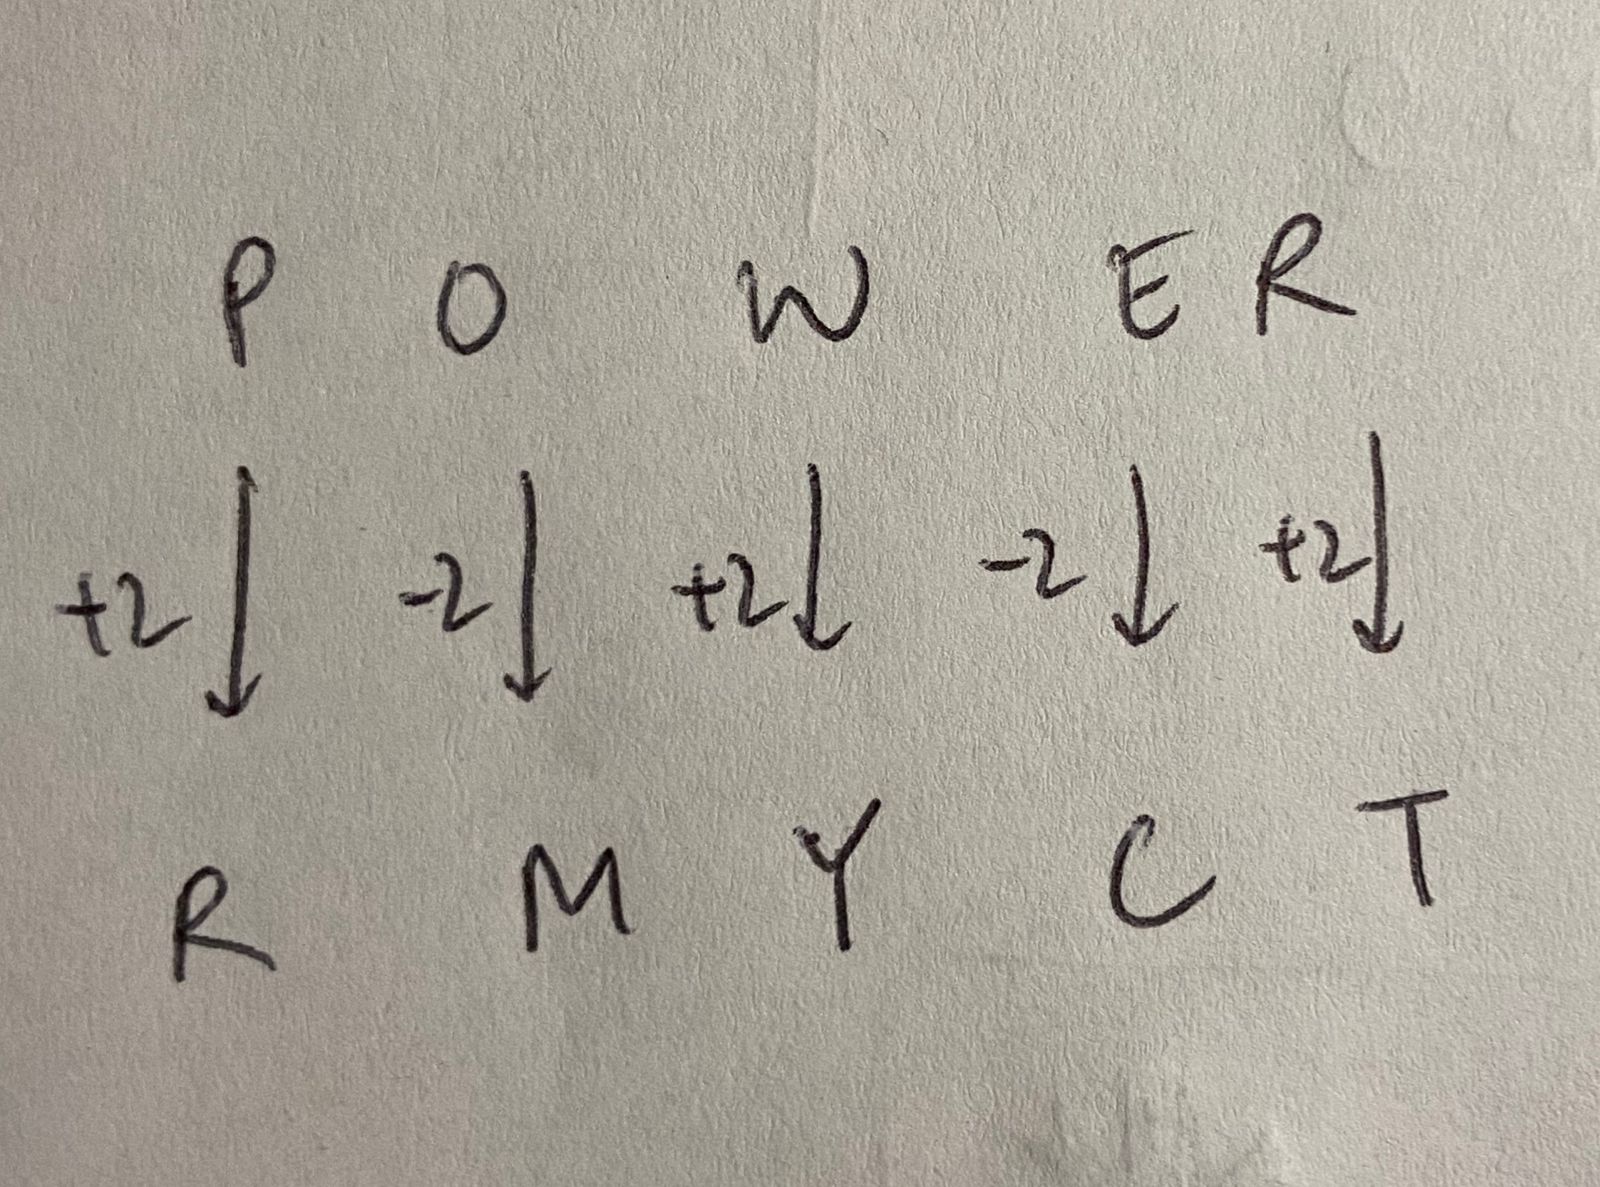 P O W E R
+2 -2 +2 -2 +2
R M Y C T